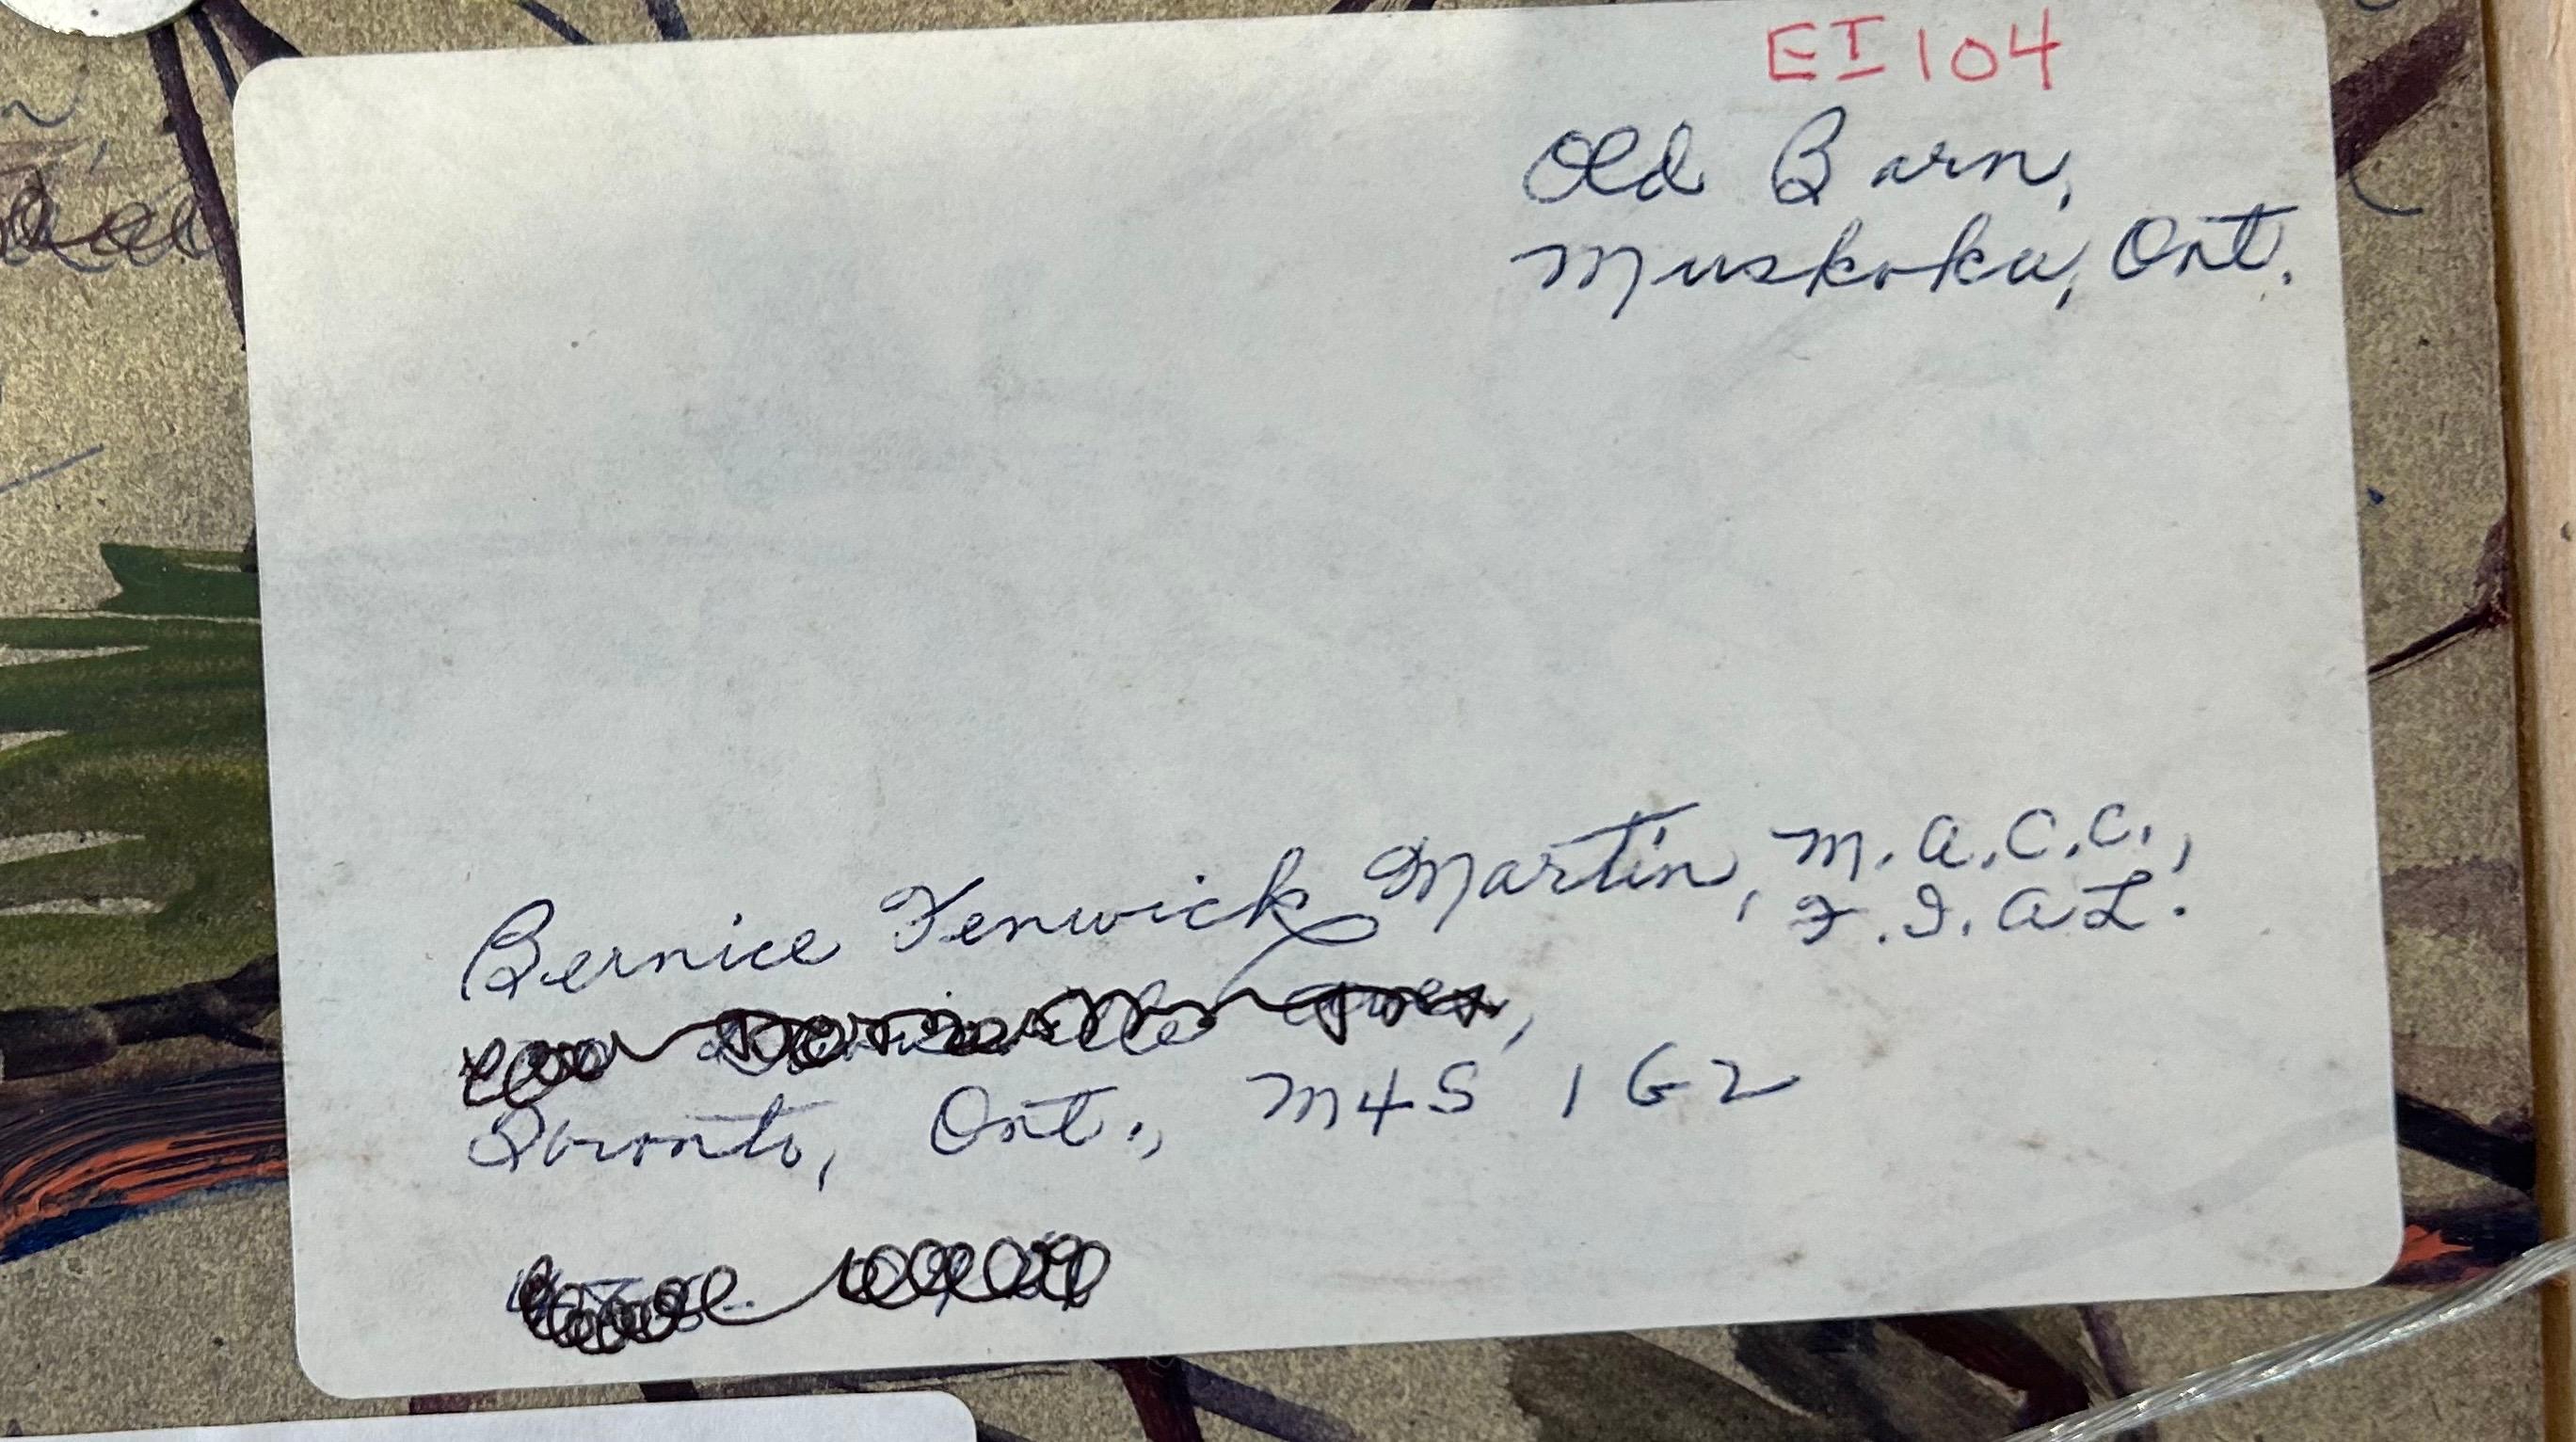 EI 104
Old Barn,
Muskoka, Ont.
Bernice Fenwick Martin, M.A.C.C.,
F.I.A.L.
Toronto, Ont., M4S 1G2